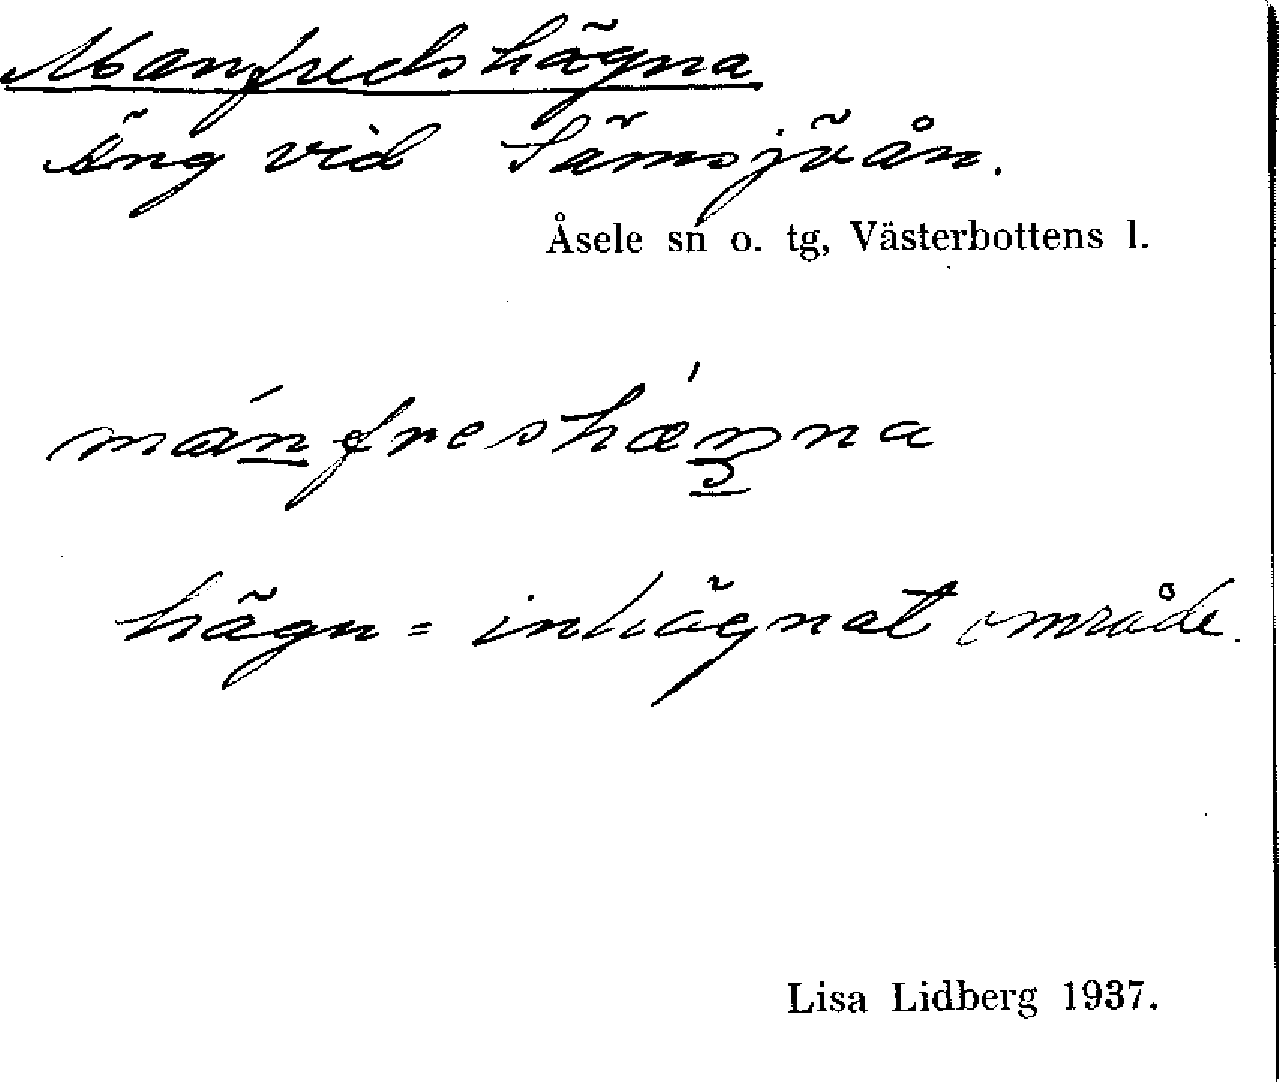 Manfredshägna
Äng vid Sämsjöån.
Åsele sn o. tg, Västerbottens l.
mánfreshǽŋna
hägn = inhägnat område.
Lisa Lidberg 1937.